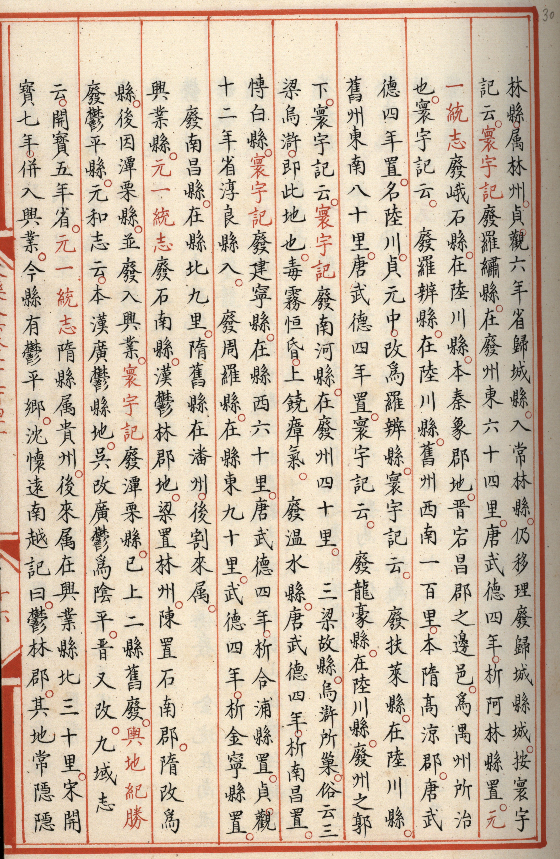 林縣属林州貞觀六年省歸城縣入常林縣仍移理廢歸城縣城按寰宇
記云寰宇記廢羅繡縣在廢州東六十四里唐武德四年析阿林縣置元
一統志廢峨石縣在陸川縣本秦象郡地晋宕昌郡之邊邑為禺州所治
也寰宇記云 廢羅辨縣在陸川縣舊州西南一百里本隋高涼郡唐武
德四年置名陸川貞元中改爲羅辨縣寰宇記云 廢扶萊縣在陸川縣
舊州東南八十里唐武德四年置寰宇記云 廢龍豪縣在陸川縣廢州之郭
下寰宇記云寰宇記廢南河縣在廢州四十里 三梁故縣烏滸所巢俗云三
梁烏滸即此地也毒霧恒昏上饒瘴氣 廢温水縣唐武德四年析南昌置
慱白縣寰宇記廢建寧縣在縣西六十里唐武德四年析合浦縣置貞觀
十二年省淳良縣入 廢周羅縣在縣東九十里武德四年析金寧縣置
廢南昌縣在縣北九里隋舊縣在潘州後割來属
興業縣元一統志廢石南縣漢鬱林郡地梁置林州陳置石南郡隋改爲
縣後因潭栗縣並廢入興業寰宇記廢潭栗縣已上二縣舊廢輿地紀勝
廢鬱平縣元和志云本漢廣鬱縣地吳改廣鬱爲陰平晋又改九域志
云開寳五年省元一統志隋縣属貴州後來属在興業縣北三十里宋開
寳七年併入興業今縣有鬱平郷沈懷遠南越記曰鬱林郡其地常隱隱
30